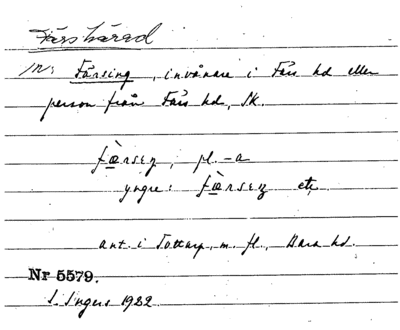 Färs härad
in: Färsing, invånare i Färs hd eller
person från Färs hd, Sk.
færseŋ, pl. -a
yngre: færseŋ etc
ant. i Tottarp, m. fl., Bara hd.
Nr 5579.
I. Ingers 1922